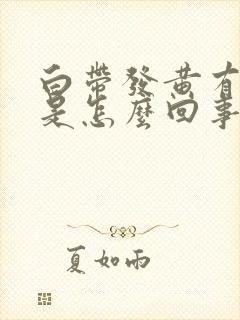 白帶發黃有
是怎麼回事
夏如雨